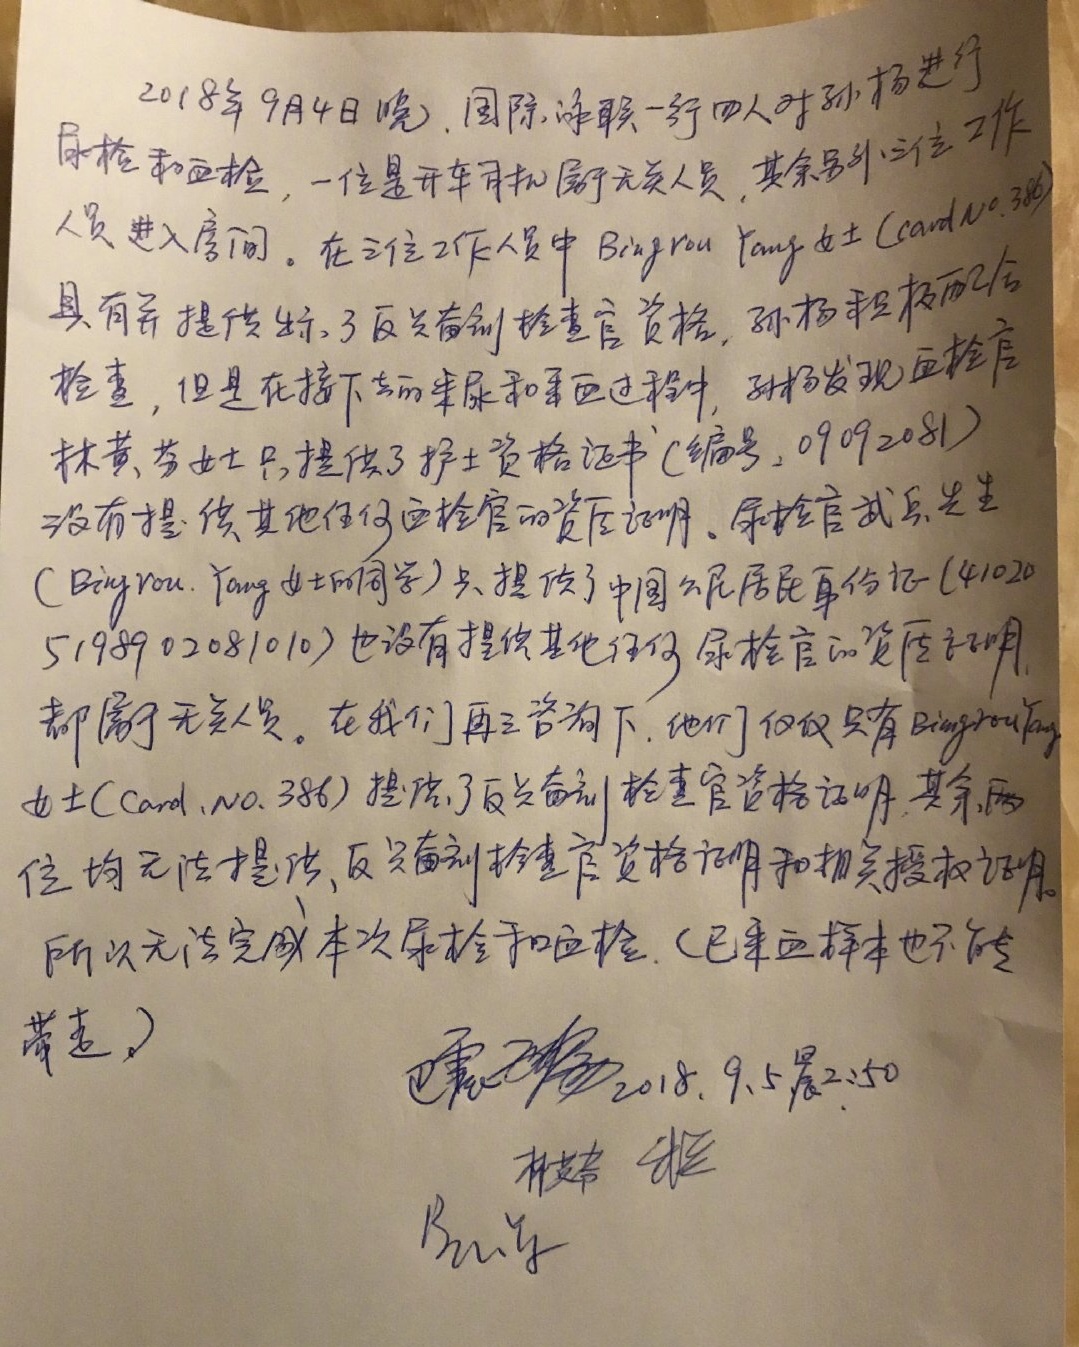 2018年9月4日晚、国际泳联一行四人对孙杨进行
尿检和血检，一位是开车司机属于无关人员，其余另外三位工作
人员进入房间。在三位工作人员中 Bingrou Yang 女士 (card No.386)
具有并提供出示了反兴奋剂检查官资格，孙杨积极配合
检查，但是在接下去的采尿和采血过程中，孙杨发现血检官
林黄芬女士只提供了护士资格证书（编号：09092081）
没有提供其他任何血检官的资质证明。尿检官武兵先生
(Bingrou.Yang 女士的同学）只提供了中国公民居民身份证（41020
5198902081010）也没有提供其他任何尿检官的资质证明，
都属于无关人员。在我们再三咨询下，他们仅仅只有 Bingrou Yang
女士（Card.NO.386）提供了反兴奋剂检查官资格证明，其余两
位均无法提供、反兴奋剂检查官资格证明和相关授权证明。
所以无法完成本次尿检和血检.（已采血样本也不能
带走。）
巴震 2018.9.5晨2:50